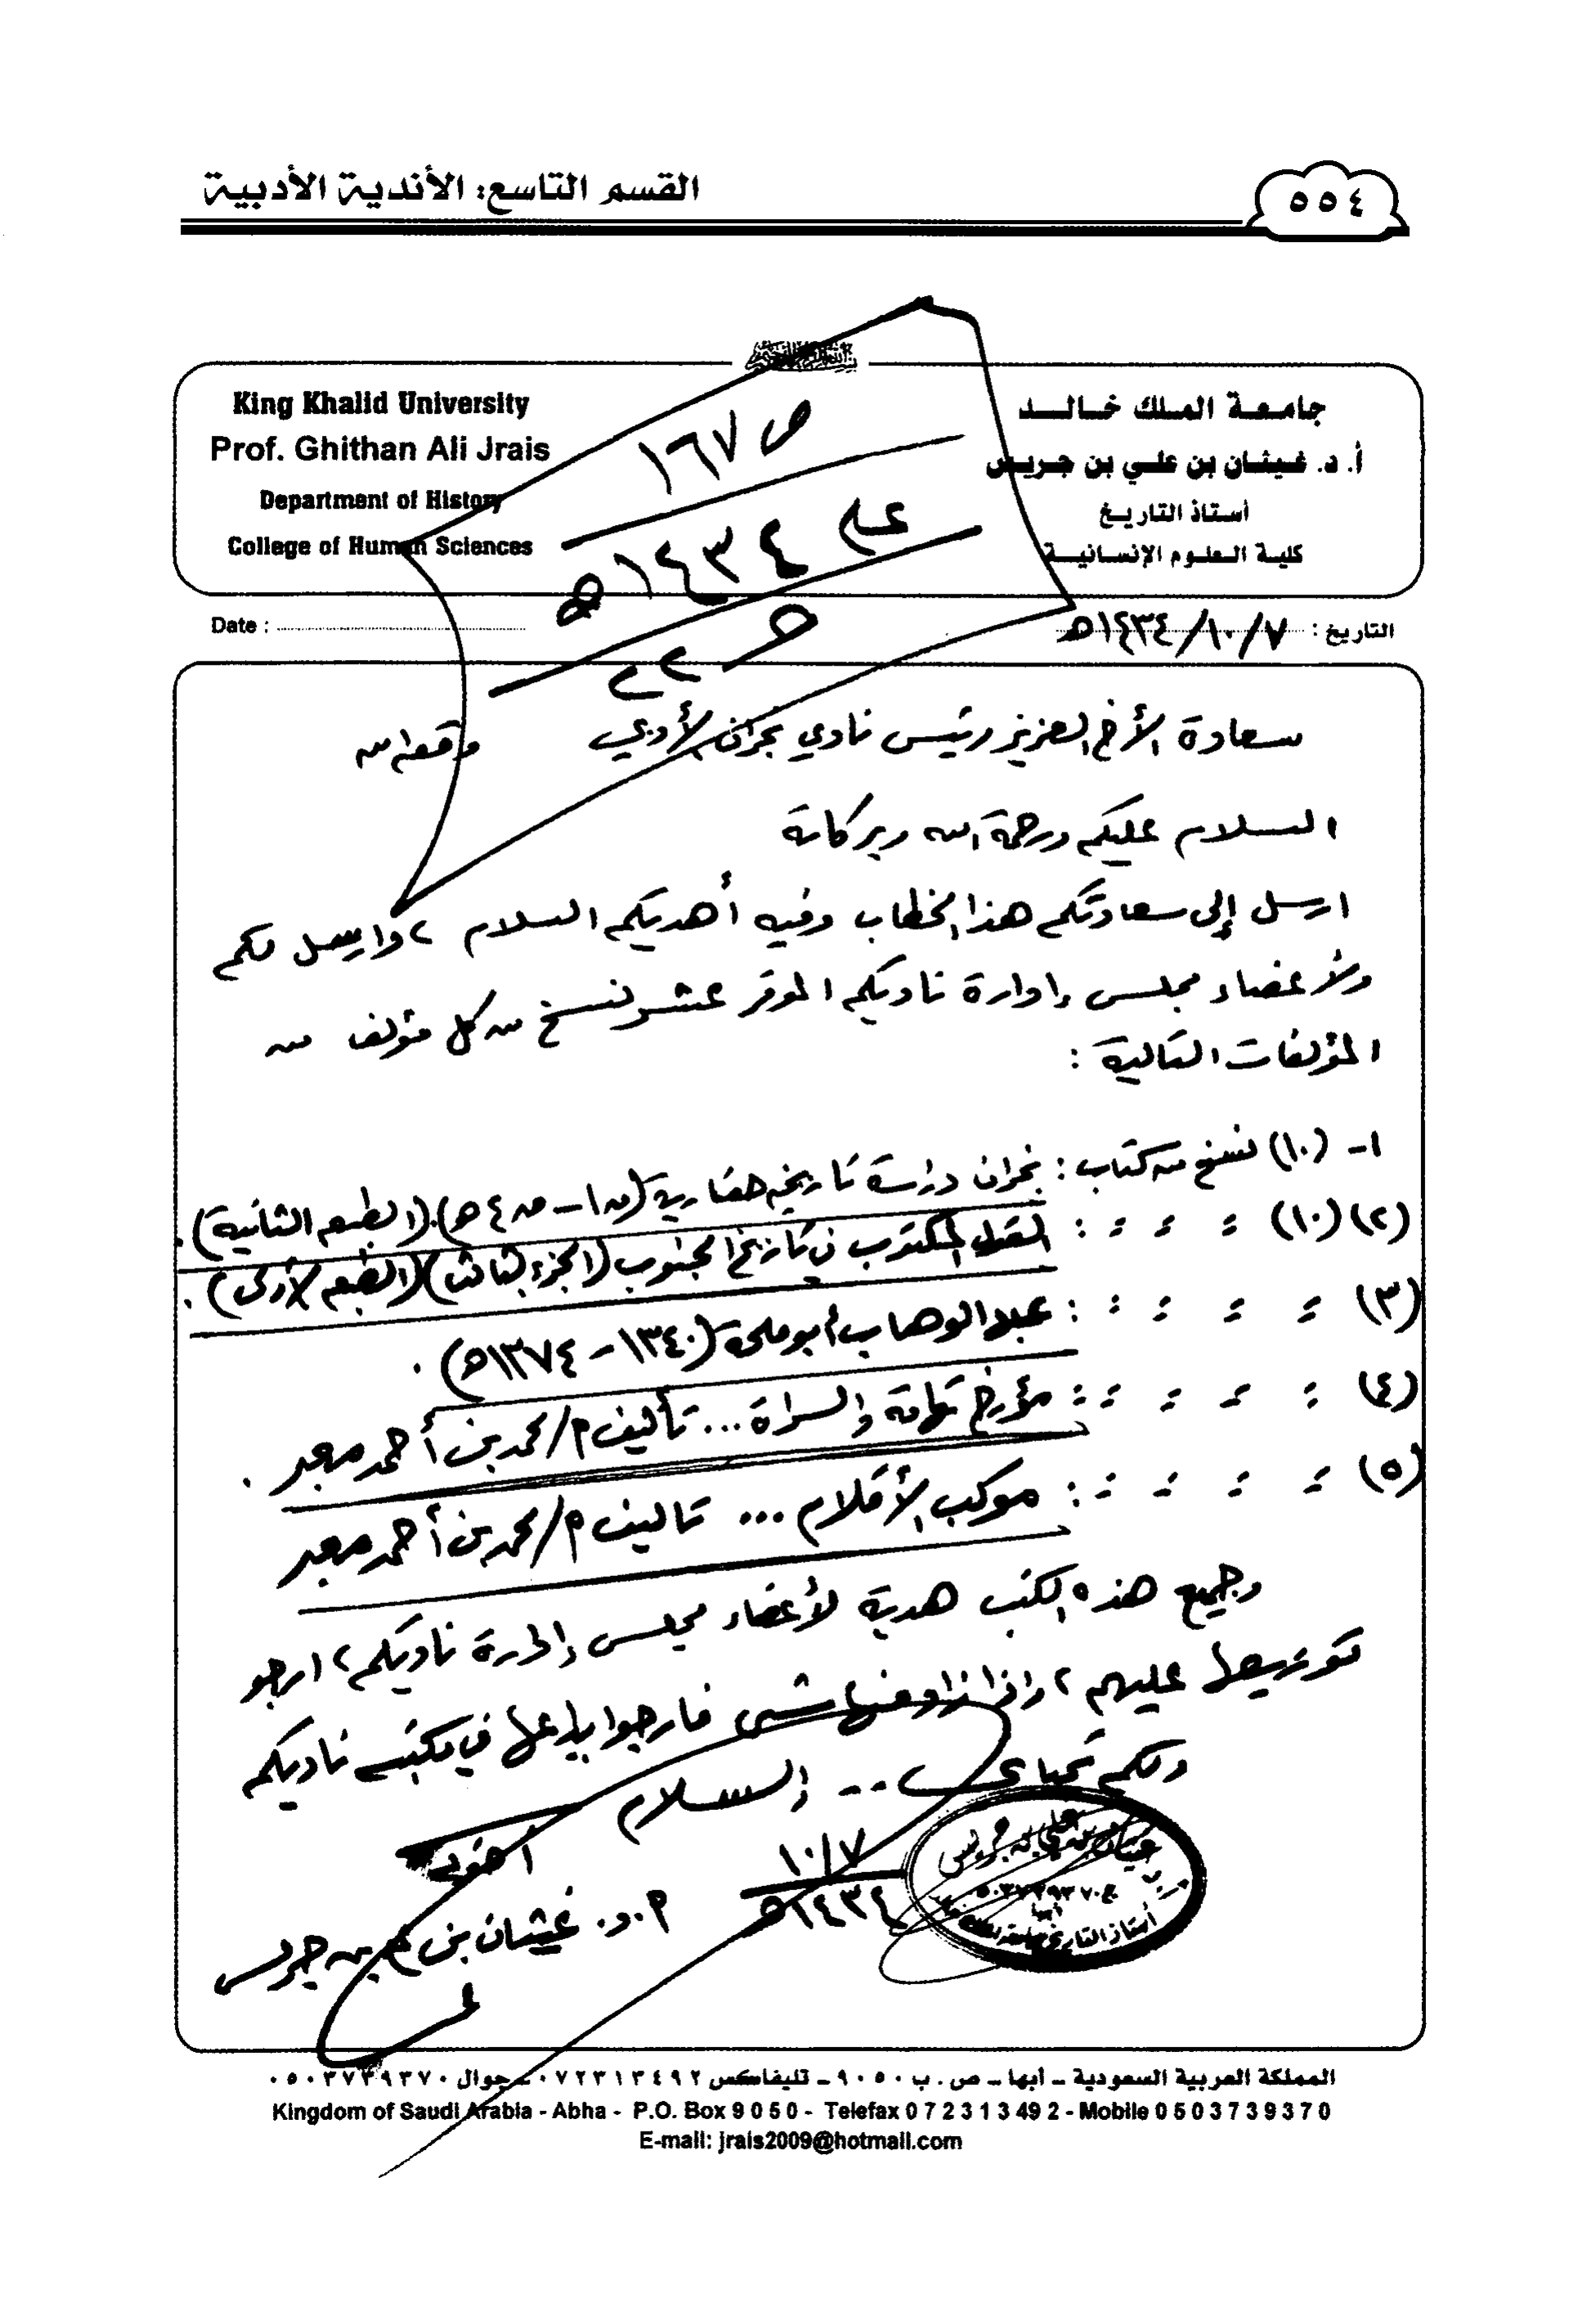 القسم التاسع: الأندية الأدبية
٥٥٤
King Khalid University
Prof. Ghithan Ali Jrais
Department of History
College of Human Sciences
جامعة الملك خالد
أ. د. غيثان بن علي بن جريس
أستاذ التاريخ
كلية العلوم الإنسانية
ص ١٦٧
عام ١٤٣٤هـ
Date :
التاريخ : ١٤٣٤/١٠/٧هـ
سعادة الأخ العزيز رئيس نادي نجران الأدبي وفقه الله
السلام عليكم ورحمة الله وبركاته
ارسل إلى سعادتكم هذا الخطاب وفيه أهديكم السلام، وارسل لكم
ولأعضاء مجلس إدارة ناديكم الموقر عشر نسخ من كل مؤلف من
المؤلفات التالية :
١- (١٠) نسخ من كتاب : نجران دراسة تاريخية حضارية (ق١ - ق٤هـ).(الطبعة الثانية).
(٢) (١٠) = = = : القول المكتوب في تاريخ الجنوب (الجزء الثالث)(الطبعة الأولى).
(٣) = = = = : عبدالوهاب أبو ملحة (١٣٤٠ - ١٣٧٤هـ).
(٤) = = = = : مؤرخ تهامة والسراة... تأليف م/محمد بن أحمد معبر.
(٥) = = = = : موكب الأقلام... تاليف م/محمد بن أحمد معبر
وجميع هذه الكتب هدية لأعضاء مجلس إدارة ناديكم، ارجو
توزيعها عليهم، وإذا زاد منها شيء فارجوا إيداعها في مكتبة ناديكم
ولكم تحياتي .. والسلام
أخوكم
١٠/٧
١٤٣٤هـ
أ.د. غيثان بن علي بن جريس
المملكة العربية السعودية - أبها - ص. ب ٩٠٥٠ - تليفاكس ٠٧٢٣١٣٤٩٢ - جوال ٠٥٠٣٧٣٩٣٧٠
Kingdom of Saudi Arabia - Abha - P.O. Box 9 0 5 0 - Telefax 0 7 2 3 1 3 49 2 - Mobile 0 5 0 3 7 3 9 3 7 0
E-mail: jrais2009@hotmail.com